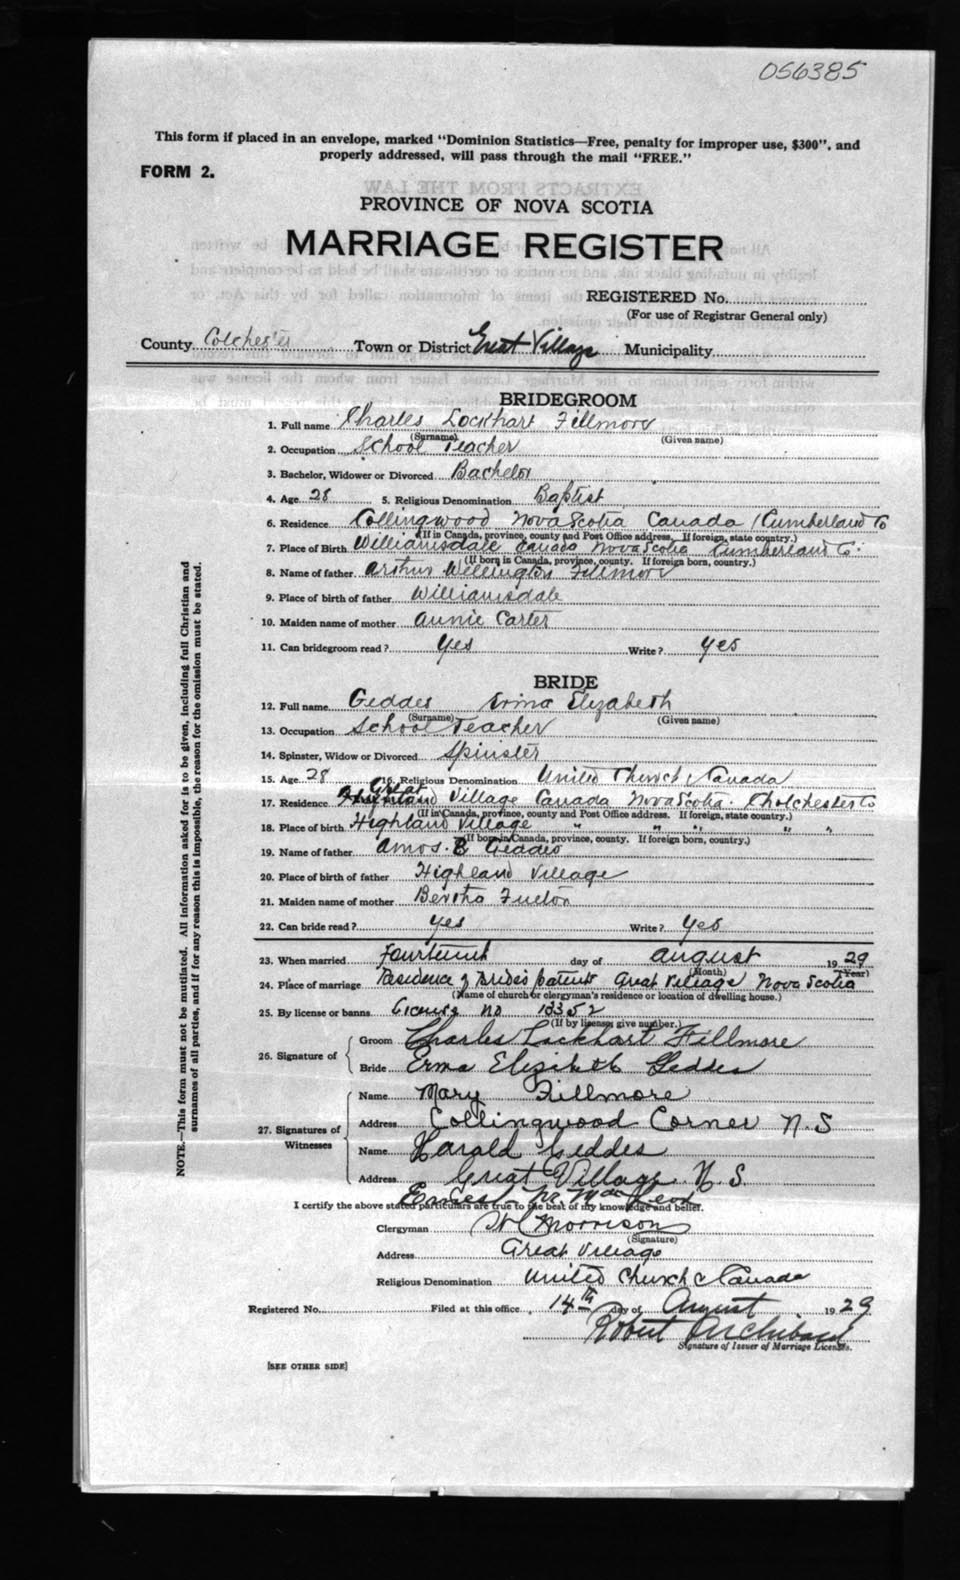 056385
This form if placed in an envelope, marked "Dominion Statistics—Free, penalty for improper use, $300", and
properly addressed, will pass through the mail "FREE."
FORM 2.
PROVINCE OF NOVA SCOTIA
MARRIAGE REGISTER
REGISTERED No.
(For use of Registrar General only)
County Colchester Town or District Great Village Municipality
BRIDEGROOM
1. Full name Charles Lockhart Fillmore
(Surname) (Given name)
2. Occupation School Teacher
3. Bachelor, Widower or Divorced Bachelor
4. Age 28 5. Religious Denomination Baptist
6. Residence Collingwood Nova Scotia Canada (Cumberland Co
(If in Canada, province, county and Post Office address. If foreign, state country.)
7. Place of Birth Williamsdale Canada Nova Scotia Cumberland Co.
(If born in Canada, province, county. If foreign born, country.)
8. Name of father Arthur Wellington Fillmore
9. Place of birth of father Williamsdale
10. Maiden name of mother Annie Carter
11. Can bridegroom read? Yes Write? Yes
BRIDE
12. Full name Geddes Erma Elizabeth
(Surname) (Given name)
13. Occupation School Teacher
14. Spinster, Widow or Divorced Spinster
15. Age 28 16. Religious Denomination United Church Canada
17. Residence Great Village Canada Nova Scotia Cholchester Co
(If in Canada, province, county and Post Office address. If foreign, state country.)
18. Place of birth Highland Village " " " " "
(If born in Canada, province, county. If foreign born, country.)
19. Name of father Amos. B Geddes
20. Place of birth of father Highland Village
21. Maiden name of mother Bertha Fulton
22. Can bride read? Yes Write? Yes
23. When married Fourteenth day of August 1929
(Month) (Year)
24. Place of marriage Residence of Bride's parents Great Village Nova Scotia
(Name of church or clergyman's residence or location of dwelling house.)
25. By license or banns License no 13352
(If by license, give number.)
26. Signature of Groom Charles Lockhart Fillmore
Bride Erma Elizabeth Geddes
27. Signatures of Witnesses
Name Mary Fillmore
Address Collingwood Corner N.S
Name Harold Geddes
Address Great Village N.S.
Ernest M. MacLeod
I certify the above stated particulars are true to the best of my knowledge and belief.
Clergyman Morrison
(Signature)
Address Great Village
Religious Denomination United Church of Canada
Registered No. Filed at this office 14th day of August 1929
Robert Archibald
Signature of Issuer of Marriage Licenses.
[SEE OTHER SIDE]
NOTE.—This form must not be mutilated. All information asked for is to be given, including full Christian and
surnames of all parties, and if for any reason this is impossible, the reason for the omission must be stated.